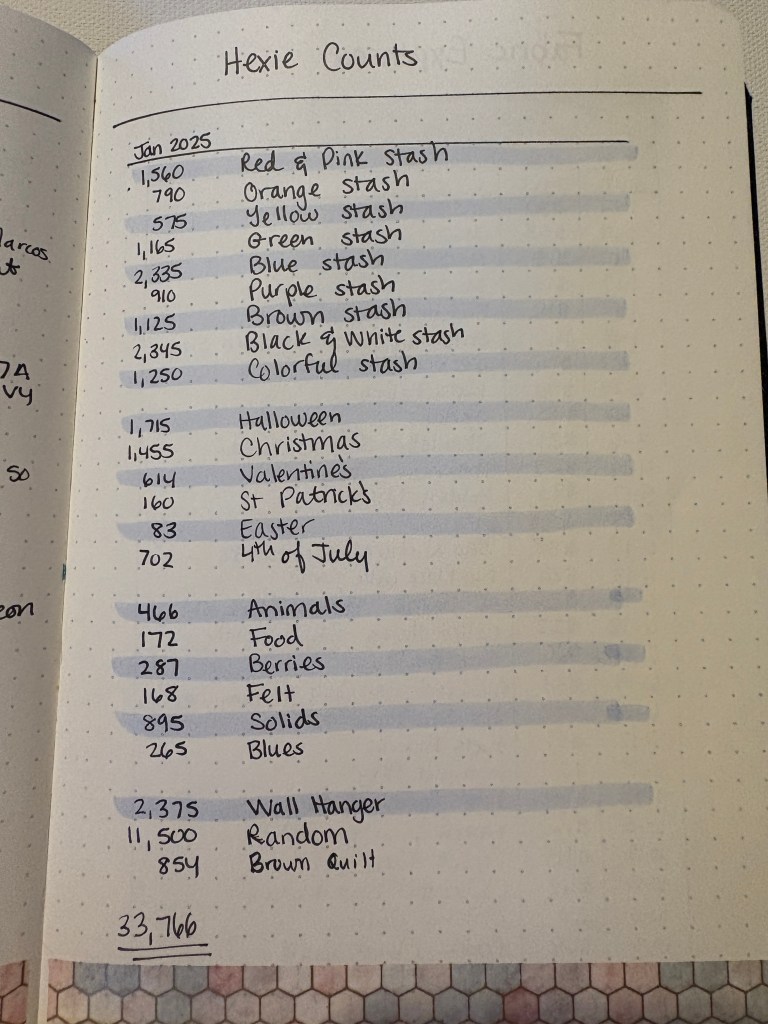 Hexie Counts
Jan 2025
1,560 Red & Pink stash
790 Orange stash
575 Yellow stash
1,165 Green stash
2,335 Blue stash
910 Purple stash
1,125 Brown stash
2,345 Black & White stash
1,250 Colorful stash
1,715 Halloween
1,455 Christmas
614 Valentine's
160 St Patrick's
83 Easter
702 4th of July
466 Animals
172 Food
287 Berries
168 Felt
895 Solids
265 Blues
2,375 Wall Hanger
11,500 Random
854 Brown Quilt
33,766